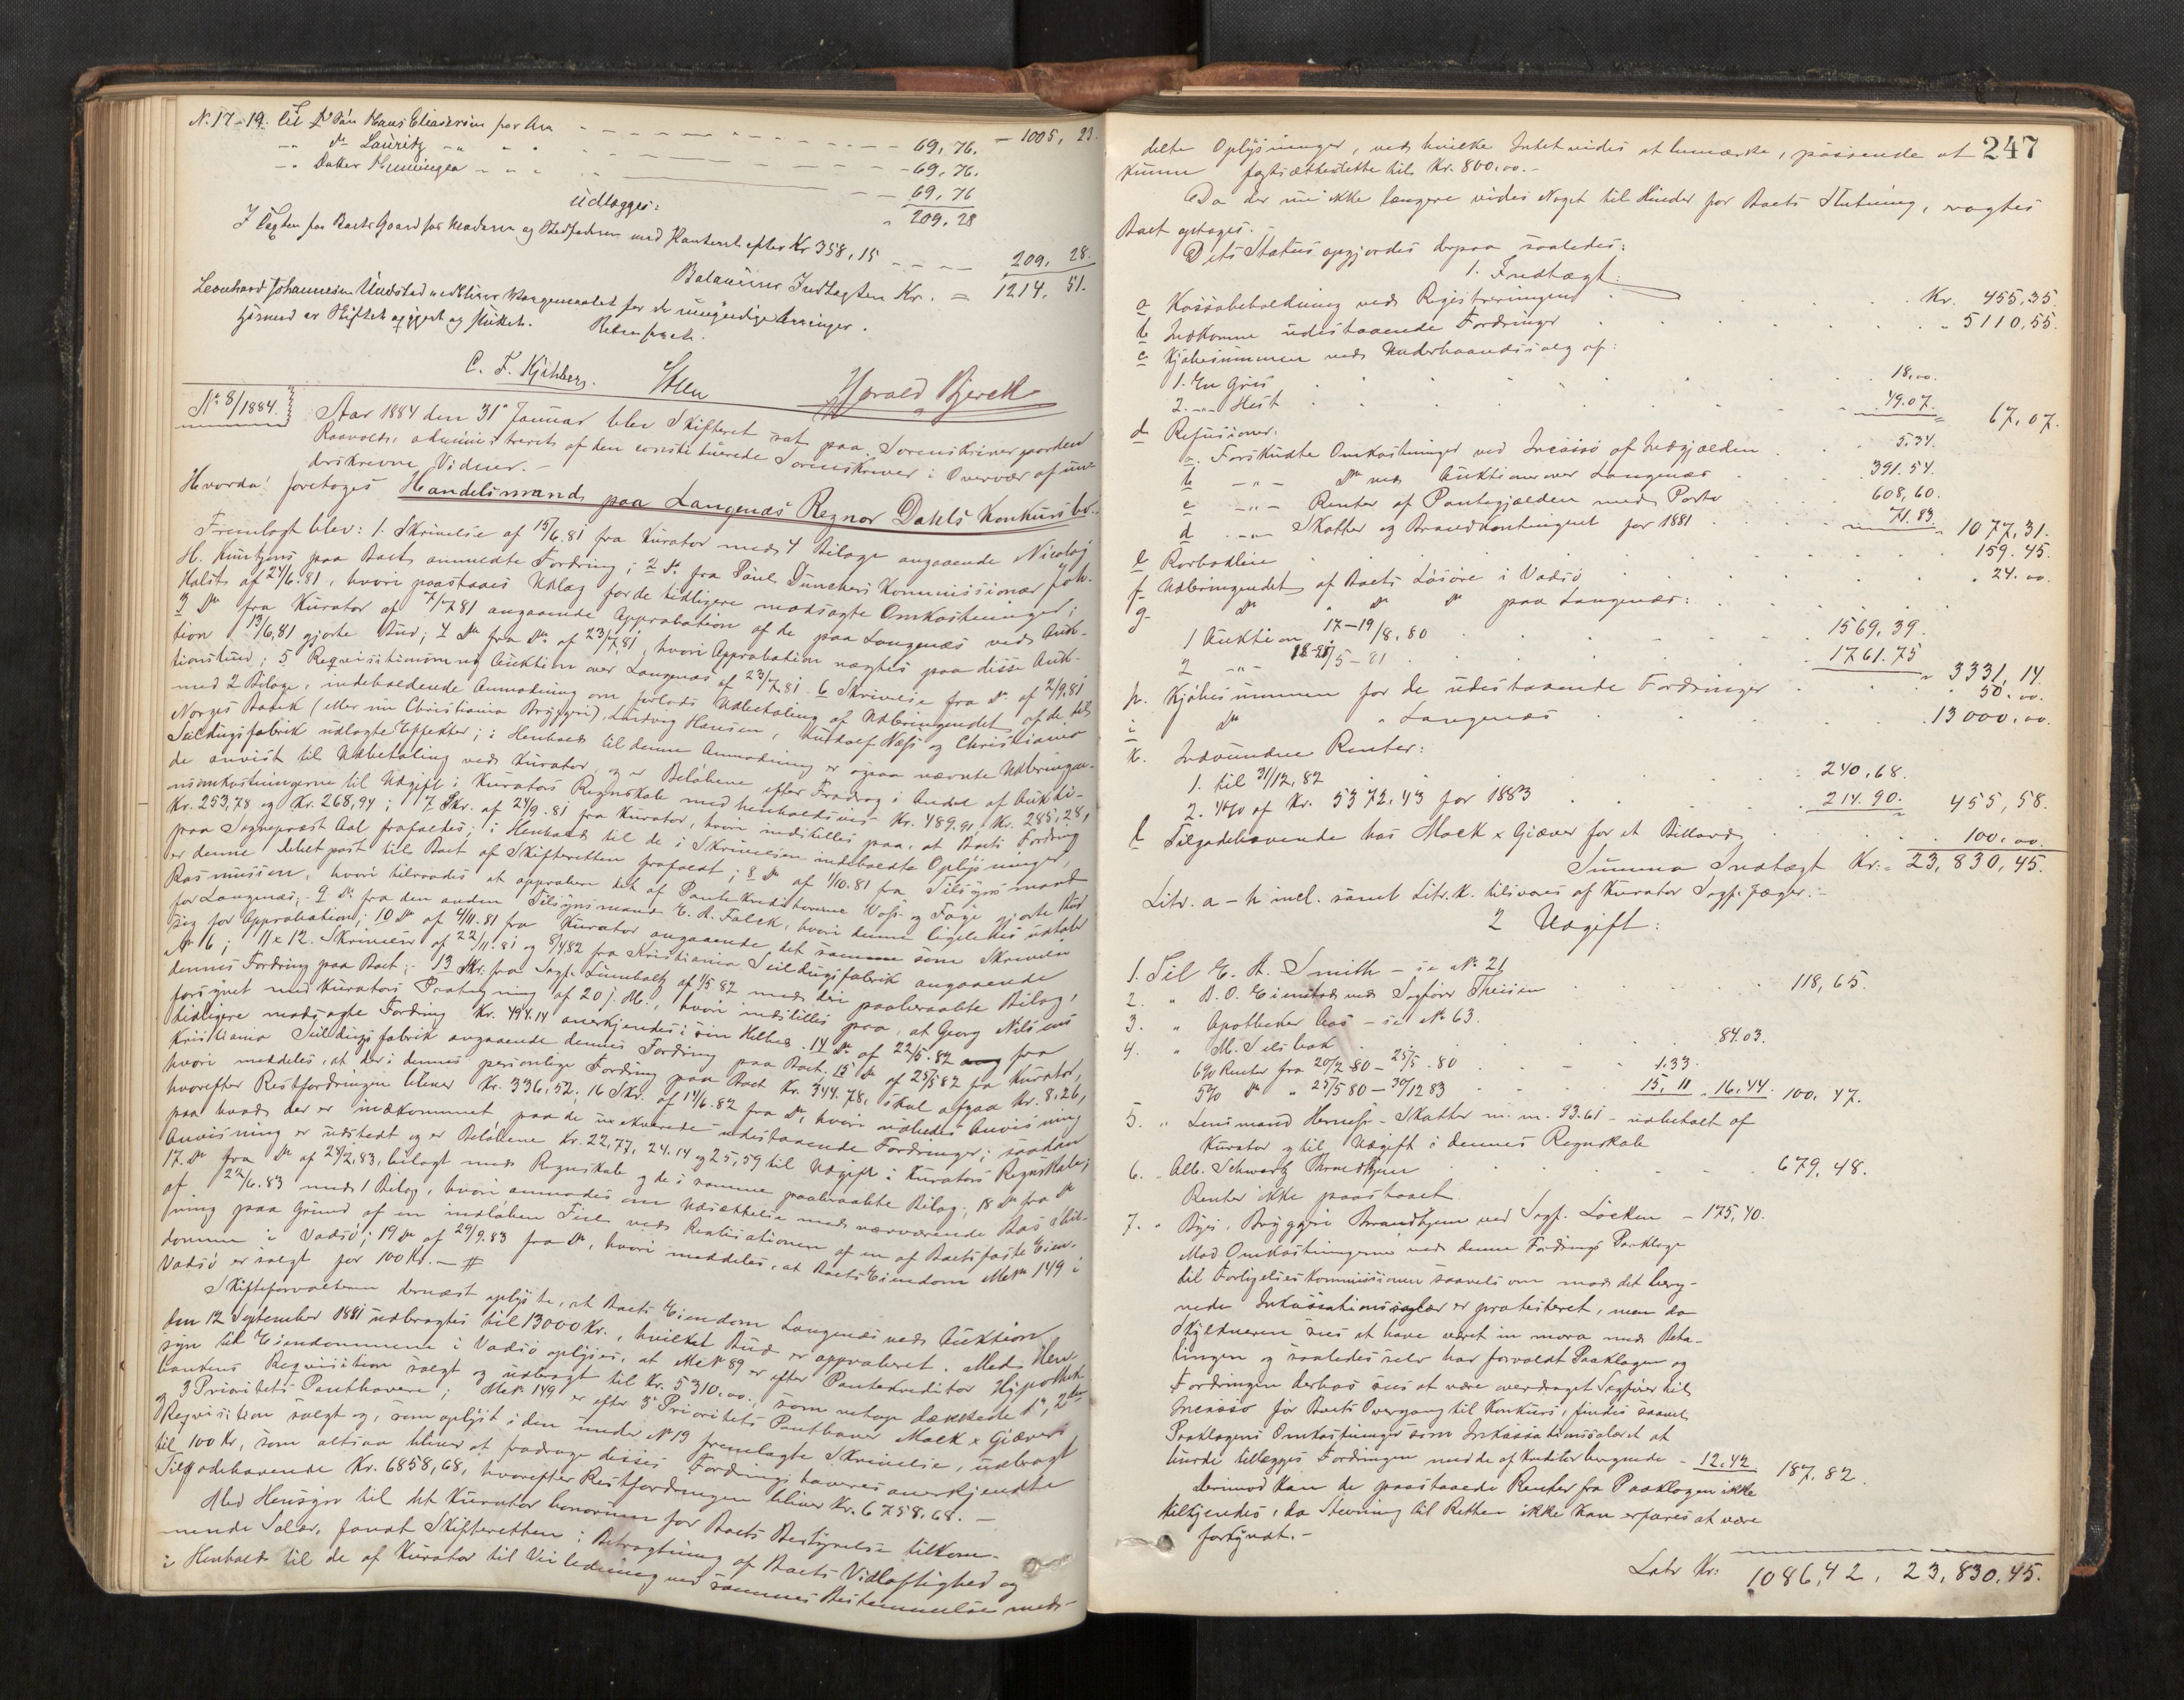 N. 17-19. Til do Søn Hans Eliassen for Arv - 1005, 23.
-"- do Lauritz -"- 69, 76.
-"- Datter Henningea -"- 69, 76.
69, 76
Udlægges: 209, 28
med Panteret efter Kr 358, 15 209, 28.
Balancerer Indtægten Kr. = 1214, 51.
Leonhard Johannesen Undstad Værgemaalet for de umyndige Arvinger.
Hermed er Skiftet opgjort og sluttet.
C. F. Kjelsberg. Harald Bjerck
No 8/1884. Aar 1884 den 31te Januar blev Skifteret sat paa Sorenskrivergaarden
administreret af den constituerede Sorenskriver i Overvær af un-
derskrevne Vidner. -
Hvorda! foretoges Handelsmand paa Langenæs Regnor Dahls Konkursbo.
Fremlagt blev: 1. Skrivelse af 15/6. 81 fra Kurator med 4 Bilage angaaende Nicolaj
H. Kuntzens paa Boet anmeldte Fordring; 2 do. fra Paul Dunckers Kommissionær Joh.
Holst af 24/6. 81, hvori paastaaes Udlæg for de tidligere modsagte Omkostninger;
3 do fra Kurator af 7/7 81 angaaende Approbation af de paa Langenæs ved Auk-
tion 13/6. 81 gjorte Bud; 4 do fra do af 23/7. 81, hvori Approbation nægtes paa disse Auk-
tionsbud; 5 Requisition om ny Auktion over Langenæs af 23/7. 81. 6 Skrivelse fra do af 2/9. 81
med 2 Bilage, indeholdende Anmodning om forlods Udbetaling af Udbringendet af de til
Norges Bank (eller nu Christiania Bryggeri), Ludvig Hansen, Rudolf Næss og Christiania
Seildugsfabrik udlagte Effekter; i Henhold til denne Anmodning er ogsaa nævnte Udbringen-
de anvist til Udbetaling ved Kurator, og er Beløbene efter Fradrag i Andel af Aukti-
onsomkostningerne til Udgift i Kurators Regnskab med henholdsvis Kr. 489.91, Kr. 285,28,
Kr. 253,78 og Kr. 268,94; 7 Skr. af 24/9. 81 fra Kurator, hvori indstilles paa, at Boets Fordring
paa Sogneprest Aal frafaldes; i Henhold til de i Skrivelsen indeholdte Oplysninger,
er denne Debetpost til Boet af Skifteretten frafaldt; 8 do af 1/10. 81 fra Tilsynsmand
Rasmussen, hvori tilraades at approbere det af Pantekreditorerne Voss og Foge gjorte Bud
for Langenæs; 9 do. fra den anden Tilsynsmand E. A. Falck, hvori denne ligeledes udtaler
sig for Approbation; 10 do af 4/11. 81 fra Kurator angaaende det samme som Skrivelse
No 6; 11 & 12. Skrivelser af 22/11. 81 og 8/4 82 fra Kristiania Seildugsfabrik angaaende
dennes Fordring paa Boet; 13 Skr. fra Sagf. Lumholtz af 1/5 82 med deri paaberaabte Bilag,
forsynet med Kurators Paategning af 20 s. M., hvori indstilles paa, at Georg Nilsens
tidligere modsagte Fordring Kr. 494.14 anerkjendes i sin Helhed. 14 do af 22/5. 82 fra
Kristiania Seildugsfabrik angaaende dennes Fordring paa Boet. 15 do af 25/5 82 fra Kurator,
hvori meddeles, at der i dennes personlige Fordring paa Boet Kr. 344.78, skal afgaa Kr. 8.26,
hvorefter Restfordringen bliver Kr. 336.52; 16 Skr. af 14/6. 82 fra do, hvori udbedes Anvisning
paa hvad der er indkommet paa de inekverede udestaaende Fordringer; saadan
Anvisning er udstedt og er Beløbene Kr. 22,77, 24.14 og 25,59 til Udgift i Kurators Regnskab;
17. do fra do af 28/2. 83, bilagt med Regnskab og de i samme paaberaabte Bilag; 18 do fra do
af 22/6. 83 med 1 Bilag, hvori anmodes om Udsættelse med nærværende Bos Slut-
ning paa Grund af en indløben Feil ved Realisationen af en af Boets faste Eien-
domme i Vadsø; 19 do af 29/9. 83 fra do, hvori meddeles, at Boets Eiendom Mat No 149 i
Vadsø er solgt for 100 Kr. -
Skifteforvalteren dernæst oplyste, at Boets Eiendom Langenæs ved Auktion
den 12 September 1881 udbragtes til 13000 Kr., hvilket Bud er approberet. Med Hen-
syn til Eiendommene i Vadsø oplyses, at Mat No 89 er efter Pantekreditor Hypothek-
bankens Requisition solgt og udbragt til Kr. 5310.00, som netop dækkede 1ste, 2den
og 3 Prioritets Panthavere; Mat No. 149 er efter 3 Prioritets Panthaver Mack & Giævers
Requisition solgt og, som oplyst i den under No 19 fremlagte Skrivelse, udbragt
til 100 Kr, som altsaa bliver at fradrage disses Fordringshaveres anerkjendte
Tilgodehavende Kr. 6858,68, hvorefter Restfordringen bliver Kr. 6758.68. -
Med Hensyn til det Kurator honorum for Boets Bestyrelse tilkom-
mende Salær, fandt Skifteretten i Betragtning af Boets Vidløftighed og
i Henhold til de af Kurator til Veiledning ved sammes Bestemmelse med-
247
delte Oplysninger, ved hvilke Intet vides at bemærke, passende at
kunne fastsætte dette til Kr. 800.00. -
Da der nu ikke længere vides Noget til Hinder for Boets Slutning, vagtes
Boet optages. -
Dets Status opgjordes derpaa saaledes:
1. Indtægt:
a Kassabeholdning ved Registreringen Kr. 455,35.
b Indkomne udestaaende Fordringer " 5110,55.
c Kjøbesummen ved Underhaandssalg af:
1. En Gris 18,00.
2. -"- Hest 49.07. 67,07.
d Refusioner:
a. Forskudte Omkostninger ved Incasso af Indgjælden 5.34.
b -"- do ved Auktioner over Langenæs 391.54.
c -"- Renter af Pantegjælden med Porto 608,60.
d -"- Skatter og Brandkontingent for 1881 71.83. 1077,31.
e Rorbodleie 159.45.
f Udbringendet af Boets Løsøre i Vadsø 24.00.
g do " do do paa Langenæs:
1 Auktion 17-19/8. 80 1569,39.
2 -"- 18-21/5 - 81 1761.75 3331,14.
h. Kjøbesummen for de udestaaende Fordringer 50.00.
i do " Langenæs 13000.00.
k. Indvundne Renter:
1. til 31/12. 82 240,68.
2. 4% af Kr. 5372,43 for 1883 214.90. 455,58.
l Tilgodehavende hos Mack & Giæver for et Billard 100,00.
Summa Indtægt Kr. 23,830,45.
Litr. a - h incl. samt Litr. k. tilsvares af Kurator Sagf. Jæger. -
2 Udgift:
1. Til E. A. Smith - se No 21 118,65.
2. " B. O. Eimstad ved Sagfører Theisen
3. " Apotheker Aas - se No 63.
4. " M. Selsbak 84.03.
6% Renter fra 20/2 80 - 25/5. 80 1.33.
5% do " 25/5 80 - 30/12 83 15,11 16,44. 100,47.
5. " Lensmand Herness - Skatter m. m. 93.61 - udbetalt af
Kurator og til Udgift i dennes Regnskab
6. " Alb. Schwartz Throndhjem 679,48.
Renter ikke paastaaet.
7. " Byes Bryggeri Throndhjem ved Sagf. Løcken - 175,40.
Mod Omkostningerne ved denne Fordrings Paaklage
til Forligelseskommissionen saavelsom mod det bereg-
nede Inkassationssalær er protesteret, men da
Skyldneren sees at have været in mora med Beta-
lingen og saaledes selv har forvoldt Paaklagen og
Fordringen derhos sees at være overdraget Sagfører til
Incasso før Boets Overgang til Konkurs, findes saavel
Paaklagens Omkostninger som Inkassationssalæret at
burde tillægges Fordringen med de af Kreditor beregnede - 12.42 187,82.
Derimod kan de paastaaede Renter fra Paaklagen ikke
tilkjendes, da Stevning til Retten ikke kan erfares at være
forkyndt. -
Latr Kr: 1086,42, 23,830,45.